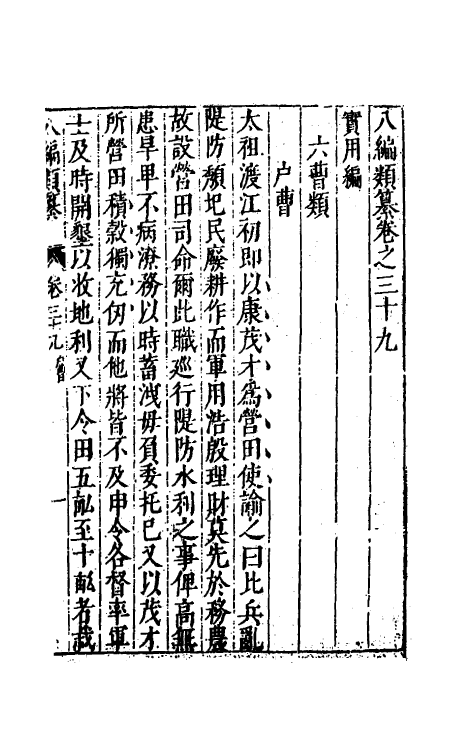 八編類纂卷之三十九
實用編
六曹類
戶曹
太祖渡江初即以康茂才為營田使諭之曰比兵亂
隄防頽圯民廢耕作而軍用浩殷理財莫先於務農
故設營田司命爾此職巡行隄防水利之事俾高無
患旱卑不病潦務以時蓄洩毋負委托已又以茂才
所營田積穀獨充仞而他將皆不及申令各督率軍
士及時開墾以收地利又下令田五畝至十畝者栽
八編類纂 卷三十九 一